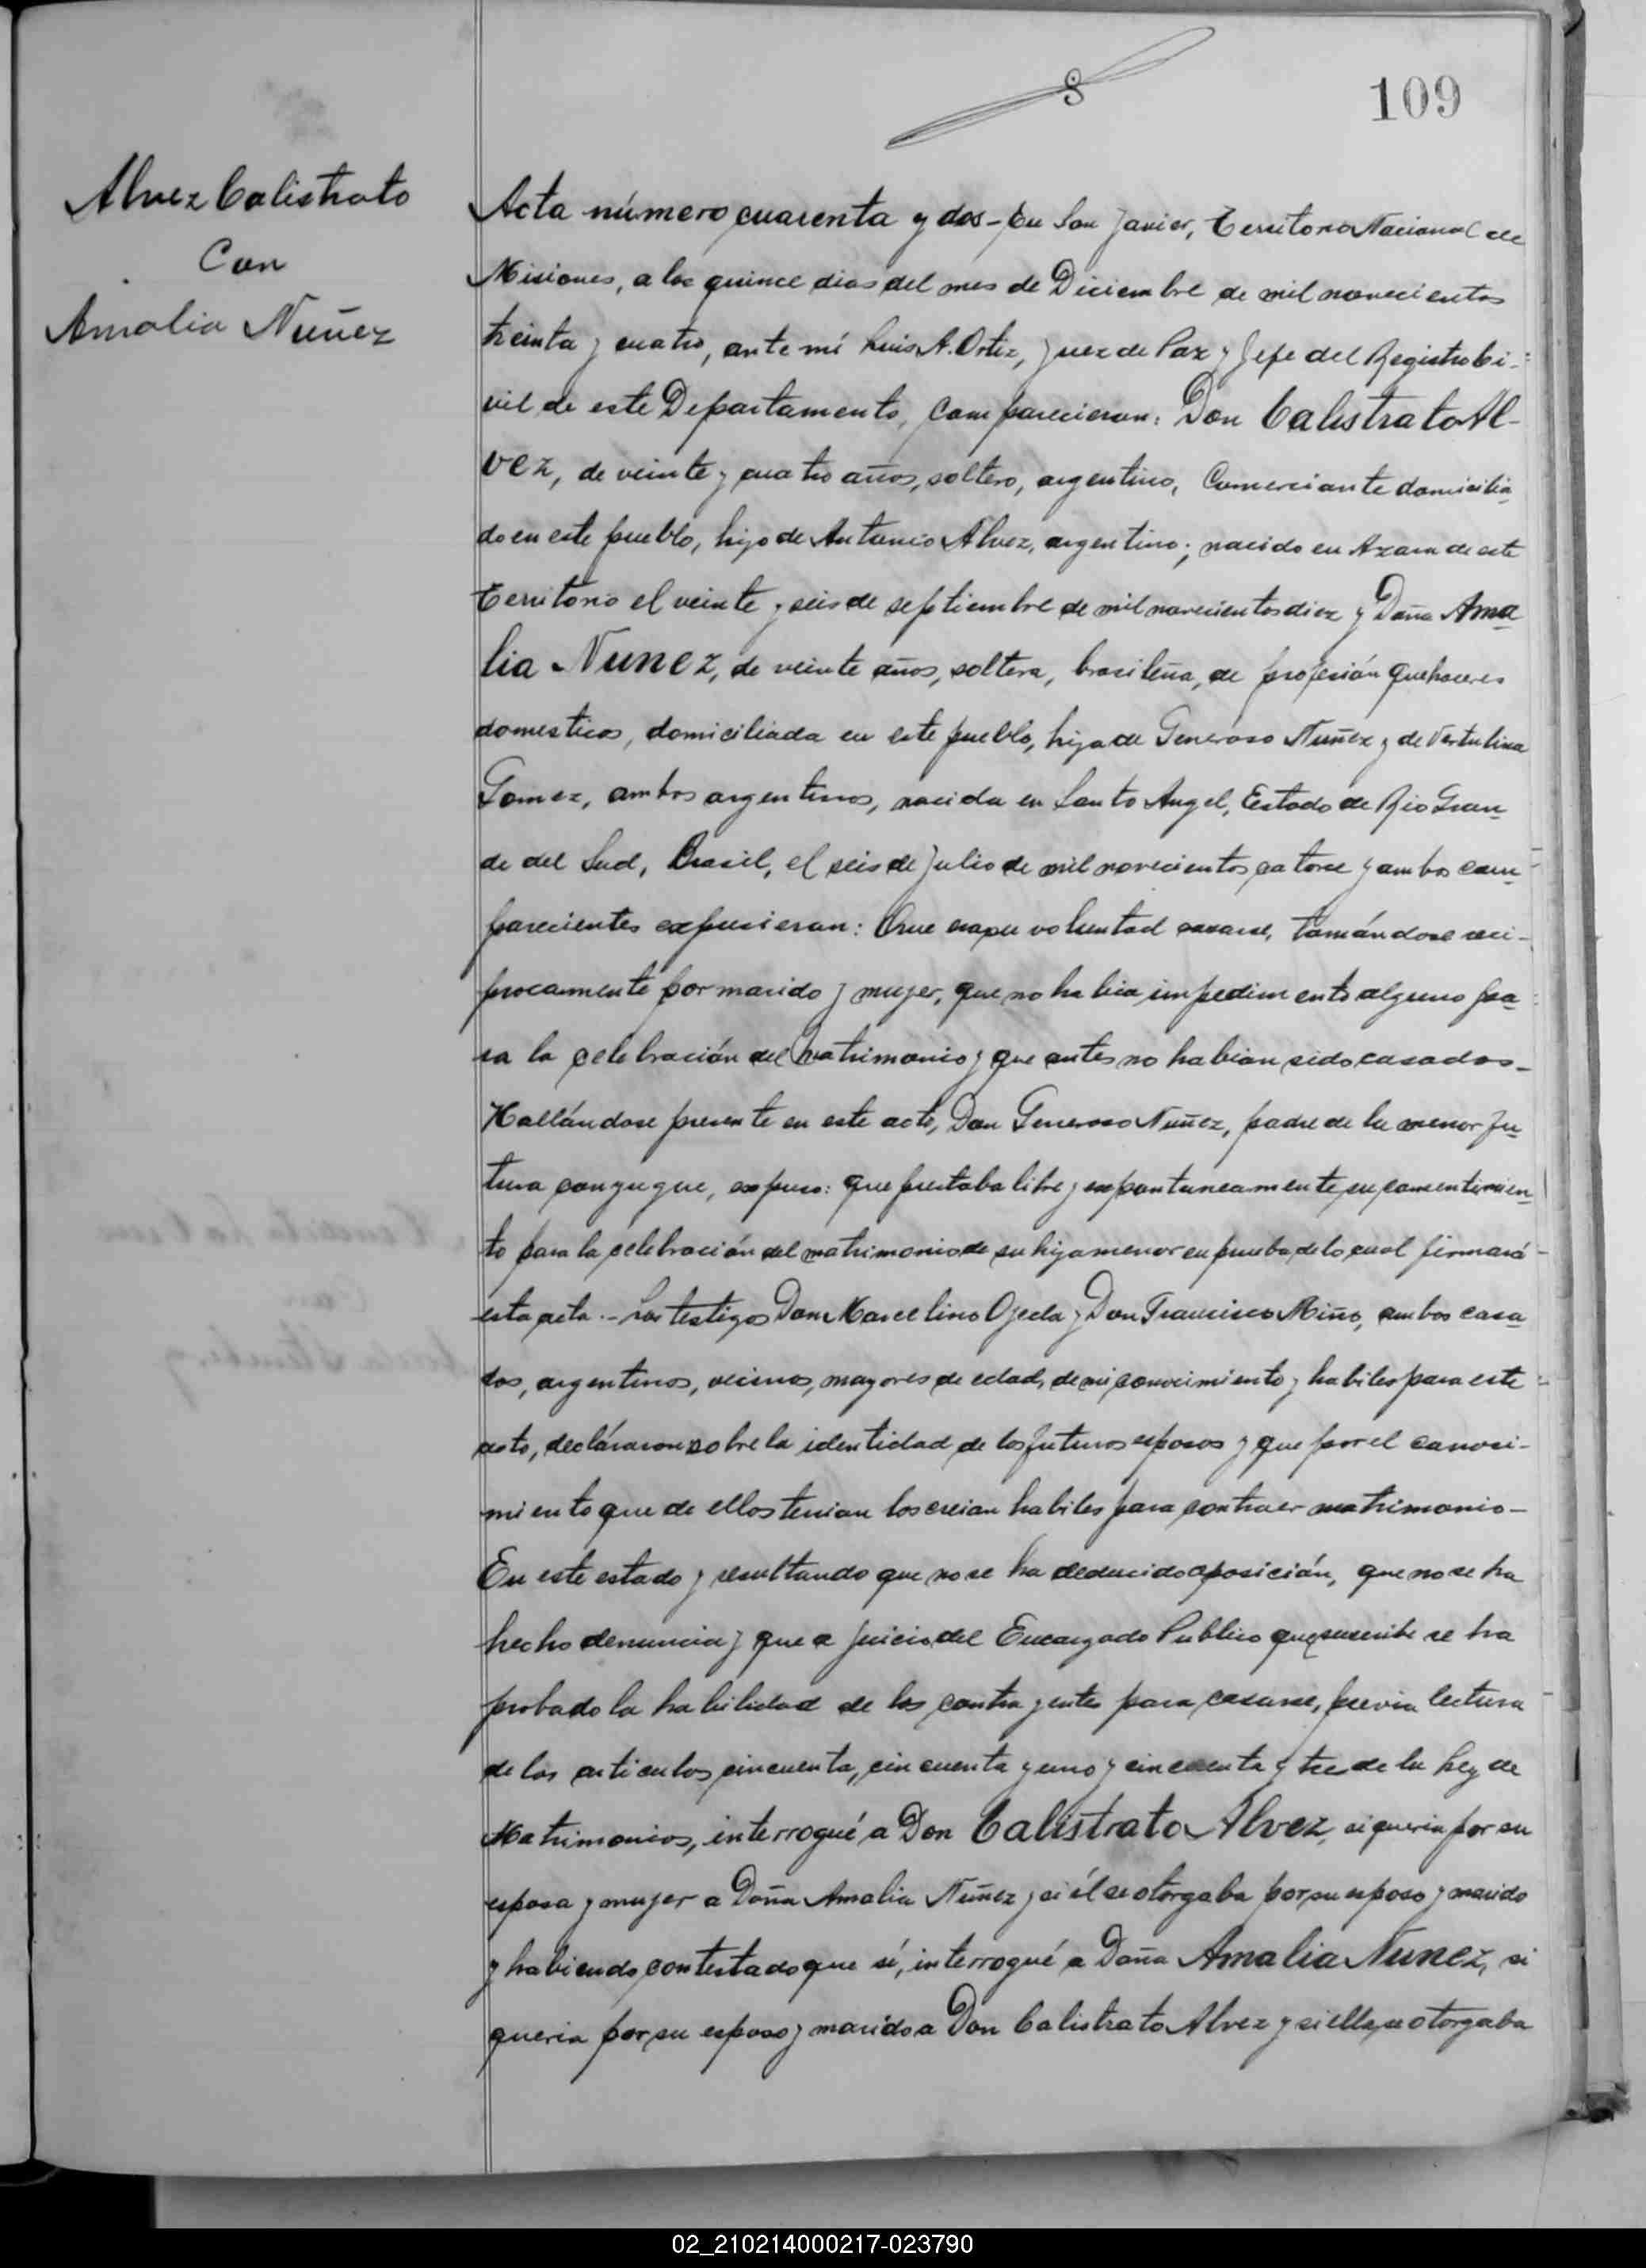 109
Alvez Calistrato
Con
Amalia Nuñez
Acta número cuarenta y dos - En San Javier, Territorio Nacional de
Misiones, a los quince dias del mes de Diciembre de mil novecientos
treinta y cuatro, ante mí Luis A. Ortiz, Juez de Paz y Jefe del Registro Ci-
vil de este Departamento, Comparecieron: Don Calistrato Al-
vez, de veinte y cuatro años, soltero, argentino, Comerciante domicilia
do en este pueblo, hijo de Antonio Alvez, argentino; nacido en Azara de este
Territorio el veinte y seis de septiembre de mil novecientos diez y Doña Ama
lia Nunez, de veinte años, soltera, brasileña, de profesión quehaceres
domesticos, domiciliada en este pueblo, hija de Generoso Nuñez y de Vertulina
Gomez, ambos argentinos, nacida en Santo Angel, Estado de Rio Gran
de del Sud, Brasil, el seis de Julio de mil novecientos catorce y ambos com
parecientes expusieron: Que era su voluntad casarse, tomándose reci-
procamente por marido y mujer, que no habia impedimento alguno pa
ra la celebración del matrimonio y que antes no habian sido casados-
Hallándose presente en este acto, Don Generoso Nuñez, padre de la menor fu
tura conyugue, expuso: que prestaba libre y expontaneamente su consentimien
to para la celebración del matrimonio de su hija menor en prueba de lo cual firmará
esta acta.- Los testigos Don Marcelino Ojeda y Don Francisco Miño, ambos casa
dos, argentinos, vecinos, mayores de edad, de mi conocimiento y habiles para este
acto, decláraron sobre la identidad de los futuros esposos y que por el conoci-
miento que de ellos tenian los creian habiles para contraer matrimonio-
En este estado y resultando que no se ha deducido oposición, que no se ha
hecho denuncia y que a juicio del Encargado Publico que suscribe se ha
probado la habilidad de los contrayentes para casarse, previa lectura
de los articulos cincuenta, cincuenta y uno y cincuenta y tres de la Ley de
Matrimonios, interrogué a Don Calistrato Alvez, si queria por su
esposa y mujer a Doña Amalia Nuñez y si él se otorgaba por su esposo y marido
y habiendo contestado que sí, interrogué a Doña Amalia Nunez, si
queria por su esposo y marido a Don Calistrato Alvez y si ella se otorgaba
02_210214000217-023790